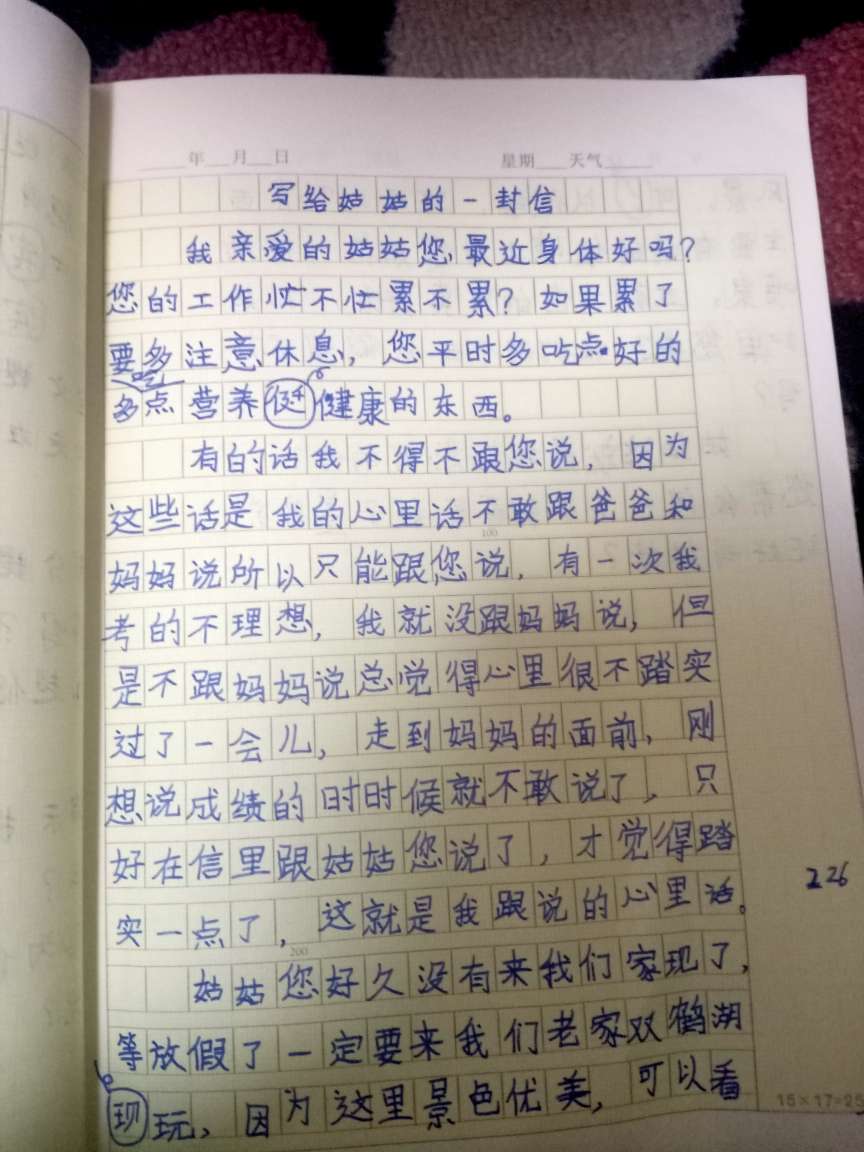 年 月 日 星期 天气
写给姑姑的一封信
我亲爱的姑姑您,最近身体好吗?
您的工作忙不忙累不累?如果累了
要多注意休息,您平时多吃点好的
吃
多点营养健康的东西。
有的话我不得不跟您说,因为
这些话是我的心里话不敢跟爸爸和
100
妈妈说所以只能跟您说,有一次我
考的不理想,我就没跟妈妈说,但
是不跟妈妈说总觉得心里很不踏实
过了一会儿,走到妈妈的面前,刚
想说成绩的时时候就不敢说了,只
好在信里跟姑姑您说了,才觉得踏
226
实一点了,这就是我跟说的心里话。
200
姑姑您好久没有来我们家现了,
等放假了一定要来我们老家双鹤湖
现玩,因为这里景色优美,可以看
15×17=25